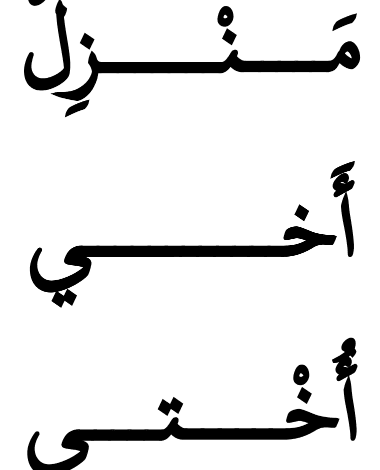 مَـــنْـــزِلٌ
أَخـــــي
أُخْـــتـــي